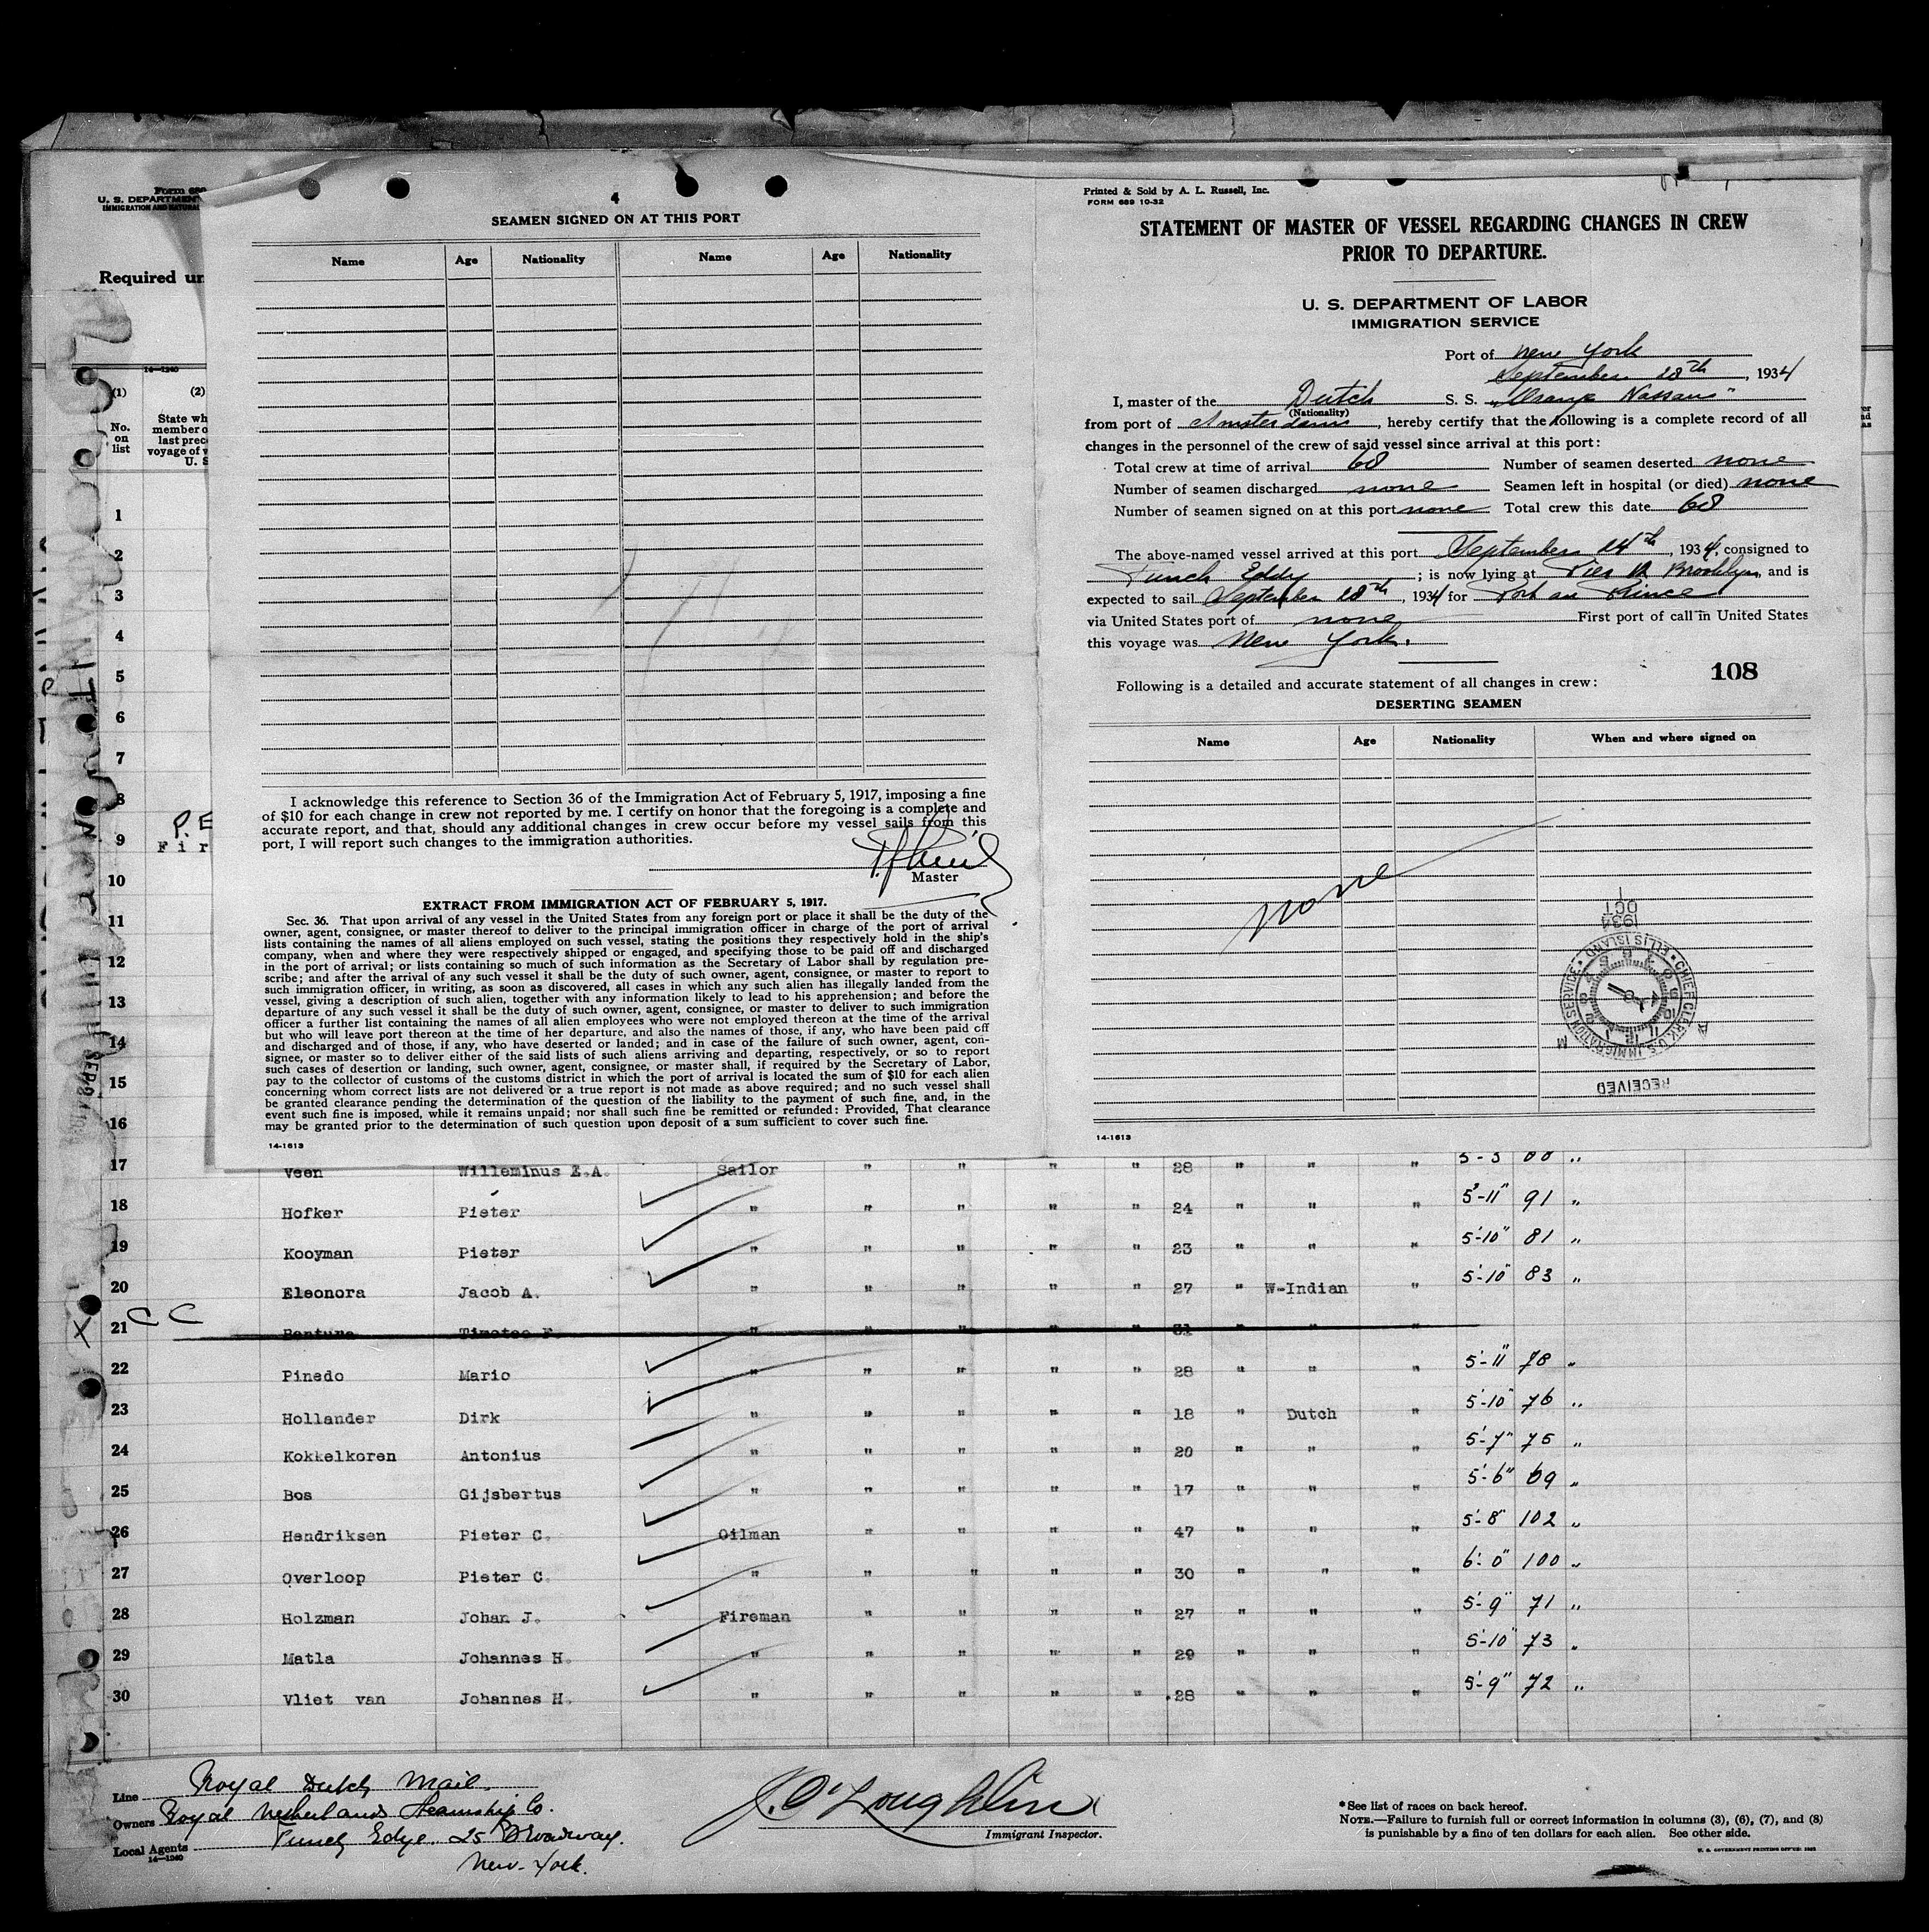 Form 689
U. S. DEPARTMENT
IMMIGRATION AND NATURAL
Required un
14-1240
(1)
(2)
No. on list
State wh
member o
last prece
voyage of v
U. S.
1
2
3
4
5
6
7
8
9
P.E
Fir
10
11
12
13
14
15
16
4
SEAMEN SIGNED ON AT THIS PORT
Name Age Nationality Name Age Nationality
I acknowledge this reference to Section 36 of the Immigration Act of February 5, 1917, imposing a fine
of $10 for each change in crew not reported by me. I certify on honor that the foregoing is a complete and
accurate report, and that, should any additional changes in crew occur before my vessel sails from this
port, I will report such changes to the immigration authorities.
Master
EXTRACT FROM IMMIGRATION ACT OF FEBRUARY 5, 1917.
Sec. 36. That upon arrival of any vessel in the United States from any foreign port or place it shall be the duty of the
owner, agent, consignee, or master thereof to deliver to the principal immigration officer in charge of the port of arrival
lists containing the names of all aliens employed on such vessel, stating the positions they respectively hold in the ship's
company, when and where they were respectively shipped or engaged, and specifying those to be paid off and discharged
in the port of arrival; or lists containing so much of such information as the Secretary of Labor shall by regulation pre-
scribe; and after the arrival of any such vessel it shall be the duty of such owner, agent, consignee, or master to report to
such immigration officer, in writing, as soon as discovered, all cases in which any such alien has illegally landed from the
vessel, giving a description of such alien, together with any information likely to lead to his apprehension; and before the
departure of any such vessel it shall be the duty of such owner, agent, consignee, or master to deliver to such immigration
officer a further list containing the names of all alien employees who were not employed thereon at the time of the arrival
but who will leave port thereon at the time of her departure, and also the names of those, if any, who have been paid off
and discharged and of those, if any, who have deserted or landed; and in case of the failure of such owner, agent, con-
signee, or master so to deliver either of the said lists of such aliens arriving and departing, respectively, or so to report
such cases of desertion or landing, such owner, agent, consignee, or master shall, if required by the Secretary of Labor,
pay to the collector of customs of the customs district in which the port of arrival is located the sum of $10 for each alien
concerning whom correct lists are not delivered or a true report is not made as above required; and no such vessel shall
be granted clearance pending the determination of the question of the liability to the payment of such fine, and, in the
event such fine is imposed, while it remains unpaid; nor shall such fine be remitted or refunded: Provided, That clearance
may be granted prior to the determination of such question upon deposit of a sum sufficient to cover such fine.
14-1613
Printed & Sold by A. L. Russell, Inc.
FORM 689 10-32
STATEMENT OF MASTER OF VESSEL REGARDING CHANGES IN CREW
PRIOR TO DEPARTURE.
U. S. DEPARTMENT OF LABOR
IMMIGRATION SERVICE
Port of New York
September 18th, 1934
I, master of the Dutch S. S. "Oranje Nassau"
(Nationality)
from port of Amsterdam, hereby certify that the following is a complete record of all
changes in the personnel of the crew of said vessel since arrival at this port:
Total crew at time of arrival 60 Number of seamen deserted none
Number of seamen discharged none Seamen left in hospital (or died) none
Number of seamen signed on at this port none Total crew this date 60
The above-named vessel arrived at this port September 14th, 1934, consigned to
Funch Eddy; is now lying at Pier Brooklyn, and is
expected to sail September 18th, 1934 for Port au Prince
via United States port of none First port of call in United States
this voyage was New York.
108
Following is a detailed and accurate statement of all changes in crew:
DESERTING SEAMEN
Name Age Nationality When and where signed on
none
1934
OCT 1
CHIEF CLERK U.S. IMMIGRATION SERVICE ELLIS ISLAND
A M
RECEIVED
14-1613
17 Veen Willeminus E.A. Sailor " " " " 28 " " " "
18 Hofker Pieter " " " " " 24 " " " 5'-11" 91 "
19 Kooyman Pieter " " " " " 23 " " " 5'-10" 81 "
20 Eleonora Jacob A. " " " " " 27 " W-Indian " 5'-10" 83 "
C C
X 21 Timoteo F. " " " " " 31 " " "
22 Pinedo Mario " " " " " 28 " " " 5'-11" 78 "
23 Hollander Dirk " " " " " 18 " Dutch " 5'-10" 76 "
24 Kokkelkoren Antonius " " " " " 20 " " " 5'-7" 75 "
25 Bos Gijsbertus " " " " " 17 " " " 5'-6" 69 "
26 Hendriksen Pieter C. Oilman " " " " 47 " " " 5'-8" 102 "
27 Overloop Pieter C. " " " " " 30 " " " 6'-0" 100 "
28 Holzman Johan J. Fireman " " " " 27 " " " 5'-9" 71 "
29 Matla Johannes H. " " " " " 29 " " " 5'-10" 73 "
30 Vliet van Johannes H. " " " " " 28 " " " 5'-9" 72 "
Line Royal Dutch Mail.
Owners Royal Netherlands Steamship Co.
Local Agents Funch Edye. 25 Broadway.
New-York.
14-1240
J. O'Loughlin
Immigrant Inspector.
*See list of races on back hereof.
NOTE.—Failure to furnish full or correct information in columns (3), (6), (7), and (8)
is punishable by a fine of ten dollars for each alien. See other side.